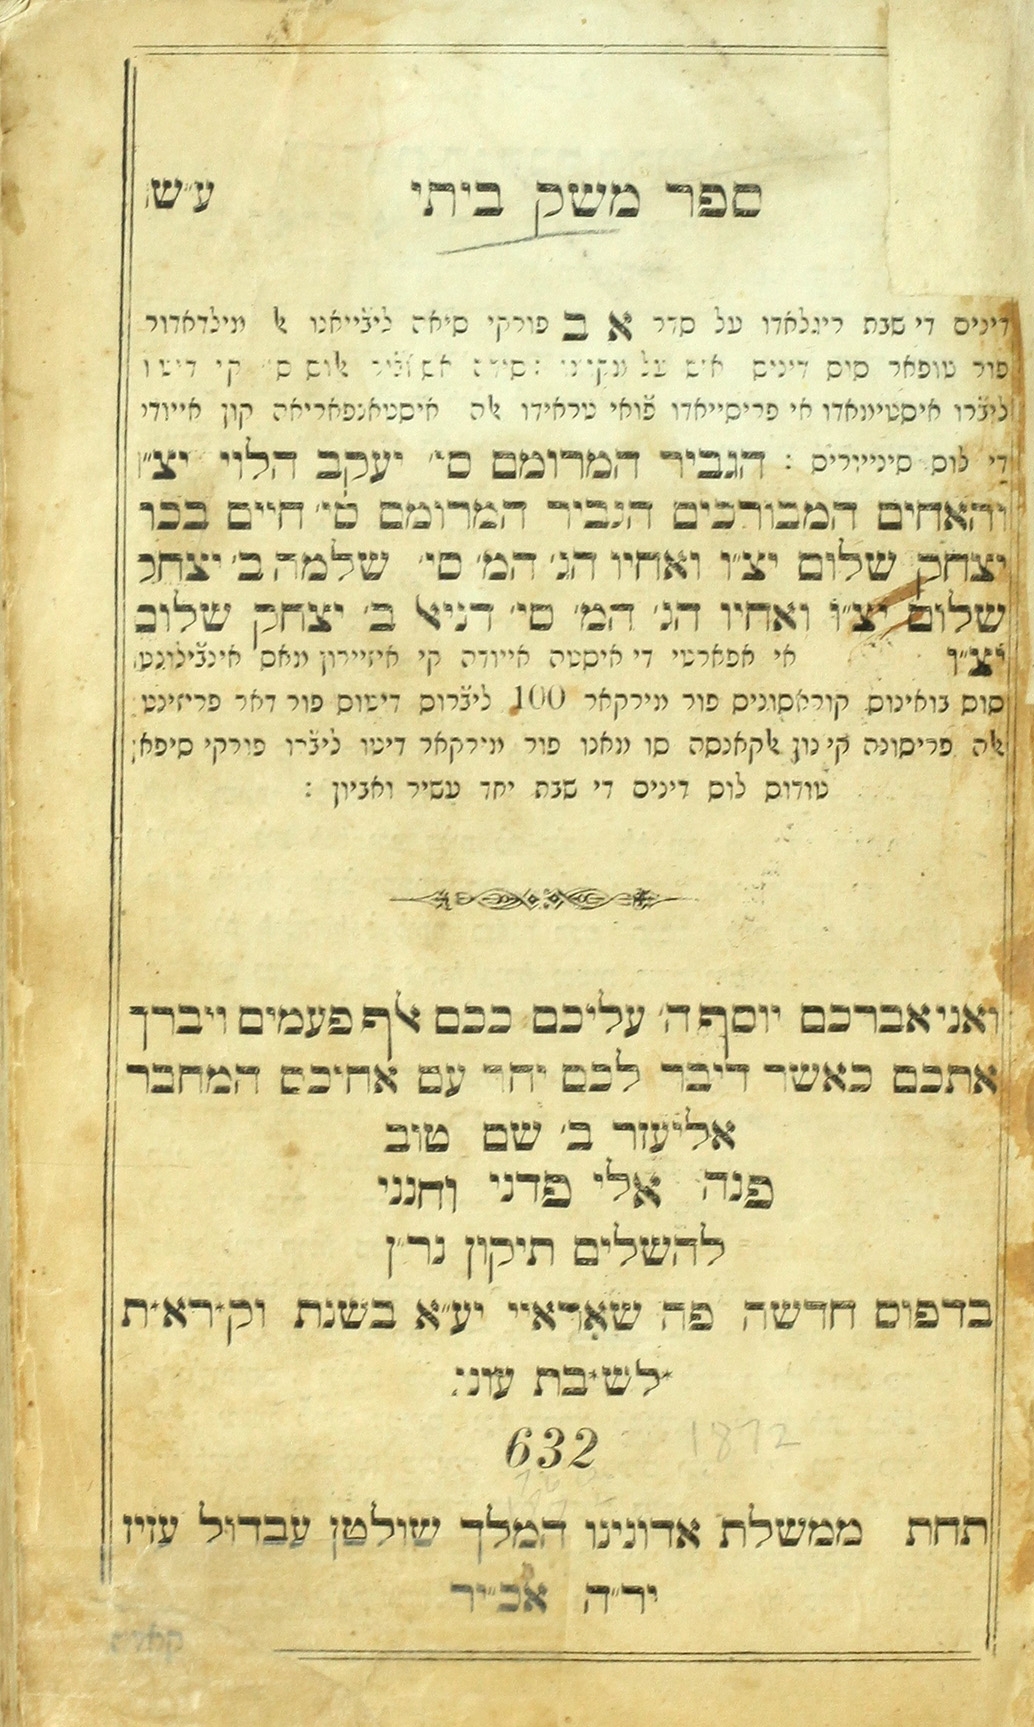 ספר משק ביתי ע״ש
דינים די שבת ריגלאדו על סדר א ב פורקי סיאה ליב׳ייאנו אל מילדאדור
פור טופאר סוס דינים קי
ליב׳רו איסטימאדו אי פריסייאדו פ׳ואי טראידו אלה איסטאמפאריאה קון אייודי
די לוס סינייוריס : הגביר המרומם סי׳ יעקב הלוי יצ״ו
והאחים המבורכים הגביר המרומם סי׳ חיים בכו
יצחק שלום יצ״ו ואחיו הג׳ המ׳ סי׳ שלמה ב׳ יצחק
שלום יצ״ו ואחיו הג׳ המ׳ סי׳ דניאל ב׳ יצחק שלום
יצ״ו אי אפארטי די איסטה אייודה קי איזיירון מאס
סוס בואינוס קוראסוניס פור מירקאר 100 ליב׳רוס דיטוס פור דאר פריזינט
אלה פריסונה קי נון אלקאנסה סו מאנו פור מירקאר דיטו ליב׳רו פורקי סיפאן
טודוס לוס דינים די שבת יחד עשיר ואביון :
ואני אברככם יוסף ה׳ עליכם ככם אלף פעמים ויברך
אתכם כאשר דיבר לכם יחד עם אחיכם המחבר
אליעזר ב׳ שם טוב
פנה אלי פדני וחנני
להשלים תיקון נר״ן
בדפוס חדשה פה שאראיי יע״א בשנת וק׳ראת
לש׳בת עונג
632
1872
תחת ממשלת אדונינו המלך שולטן עבדול עזיז
יר״ה אכי״ר